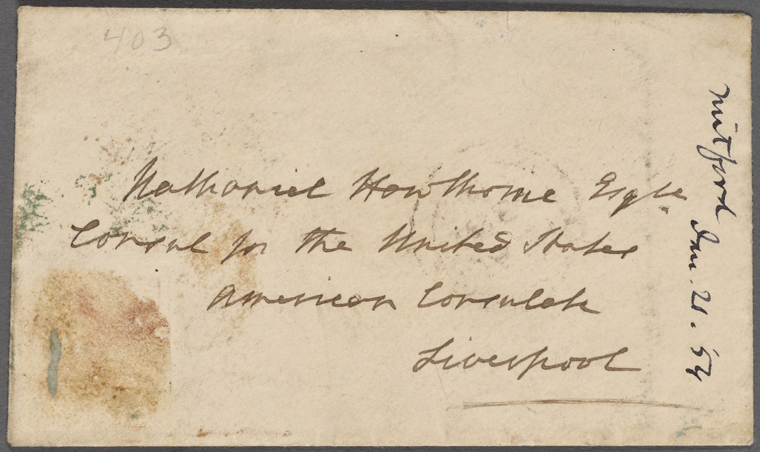 403
Nathaniel Hawthorne Esqre
Consul for the United States
American Consulate
Liverpool
Mitford Jan. 21. '54